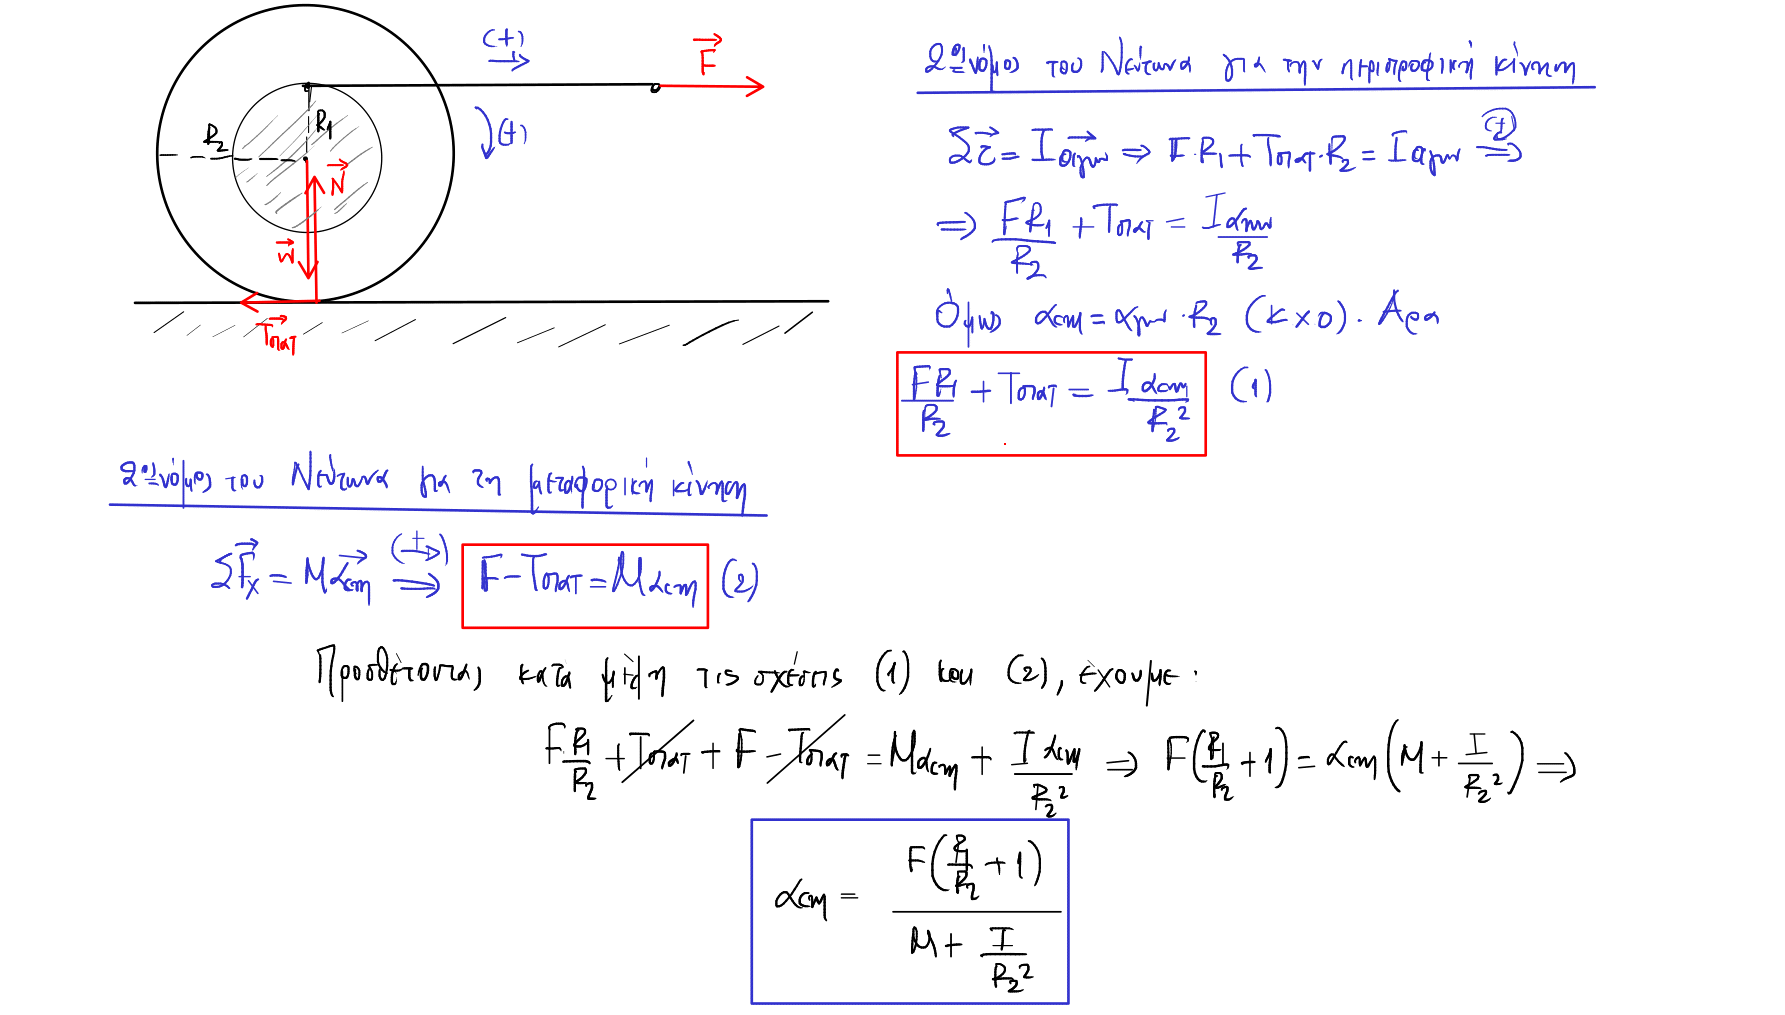 (+)
F
2ος νόμος του Νεύτωνα για την περιστροφική κίνηση
R1
R2
(+)
N
Στ = Iαγων ⇒ F·R1 + Tστατ·R2 = Iαγων (+) ⇒
W
⇒ FR1/R2 + Tστατ = Iαγων/R2
Tστατ
Όμως αcm = αγων·R2 (ΚΧΟ). Άρα
FR1/R2 + Tστατ = I αcm/R2² (1)
2ος νόμος του Νεύτωνα για τη μεταφορική κίνηση
ΣFx = Mαcm (+) ⇒ F - Tστατ = Mαcm (2)
Προσθέτοντας κατα μέλη τις σχέσεις (1) και (2), έχουμε·
F R1/R2 + Tστατ + F - Tστατ = Mαcm + I αcm/R2² ⇒ F(R1/R2 + 1) = αcm(M + I/R2²) ⇒
αcm = F(R1/R2 + 1) / M + I/R2²